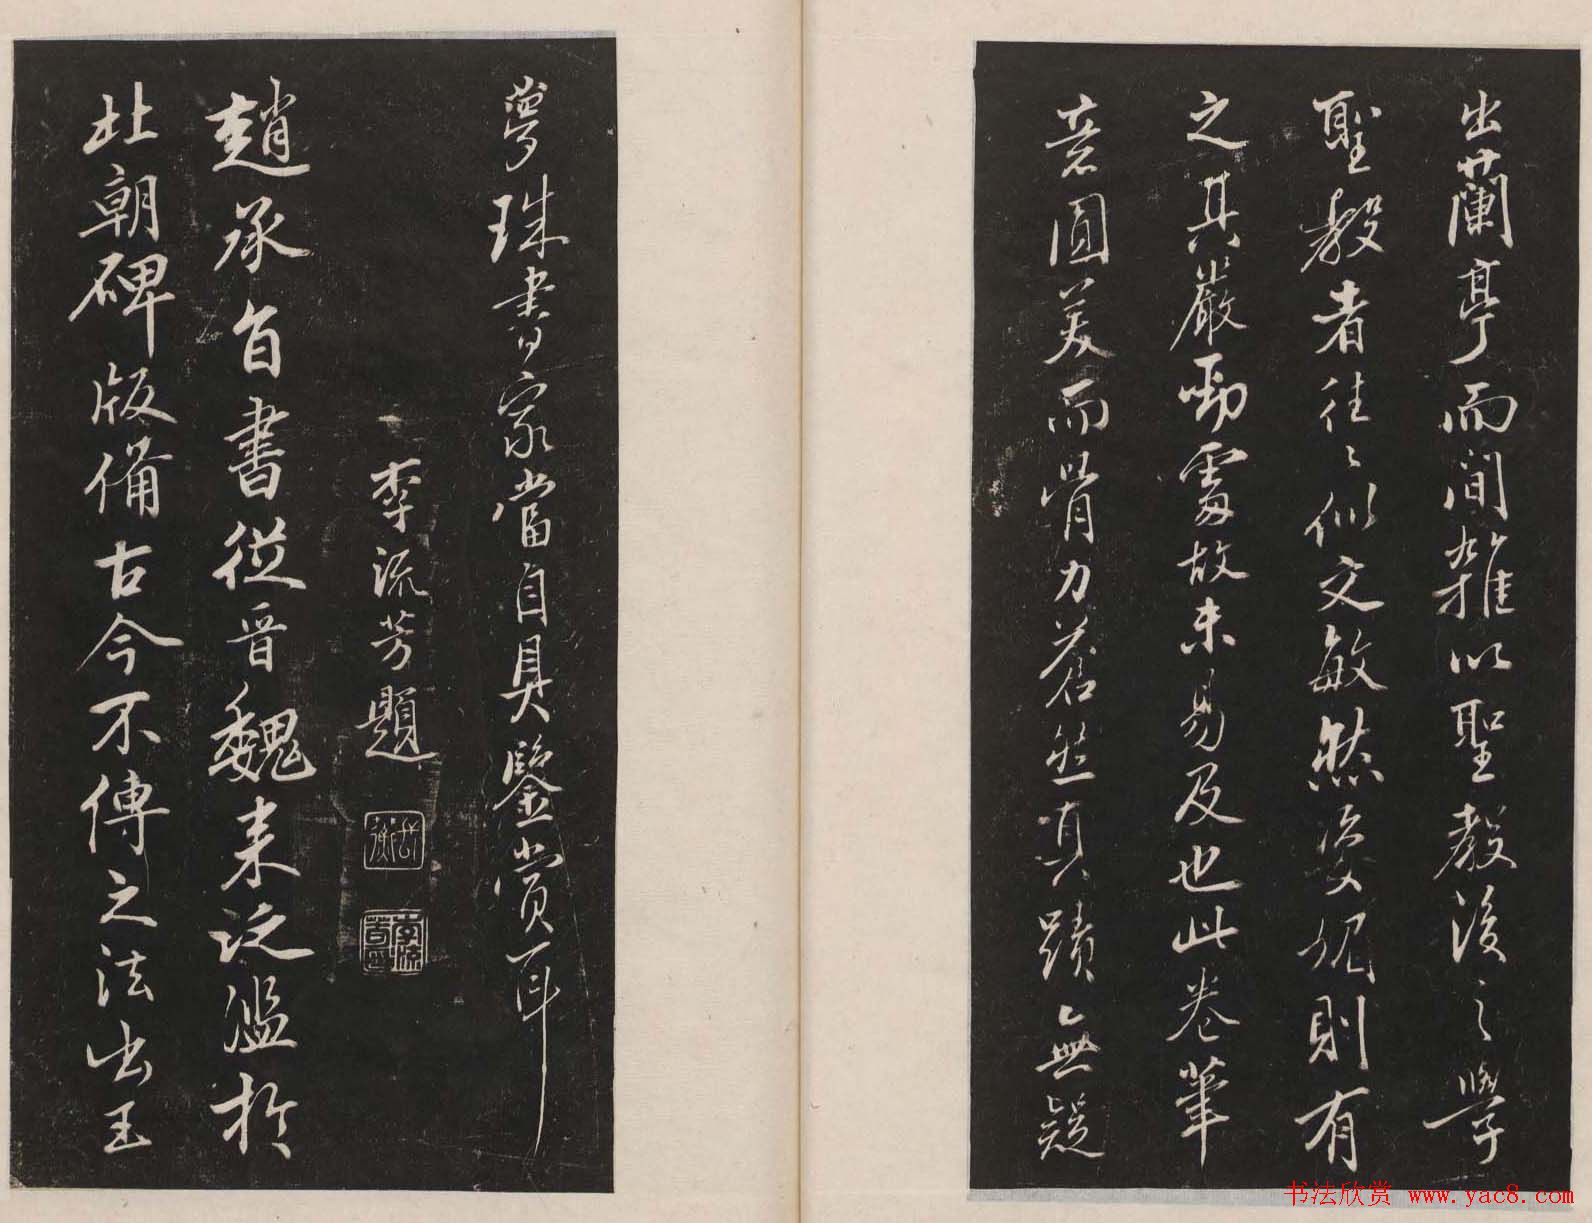 出蘭亭而間雜以聖教後之學
聖教者往々似文敏然姿媚則有
之其嚴勁處故未易及也此卷筆
意圓美而骨力蒼然真蹟無疑
夢珠書家當自具鑒賞耳
李流芳題
趙承旨書從晉魏来泛濫於
北朝碑版備古今不傳之法出王
书法欣赏 www.yac8.com